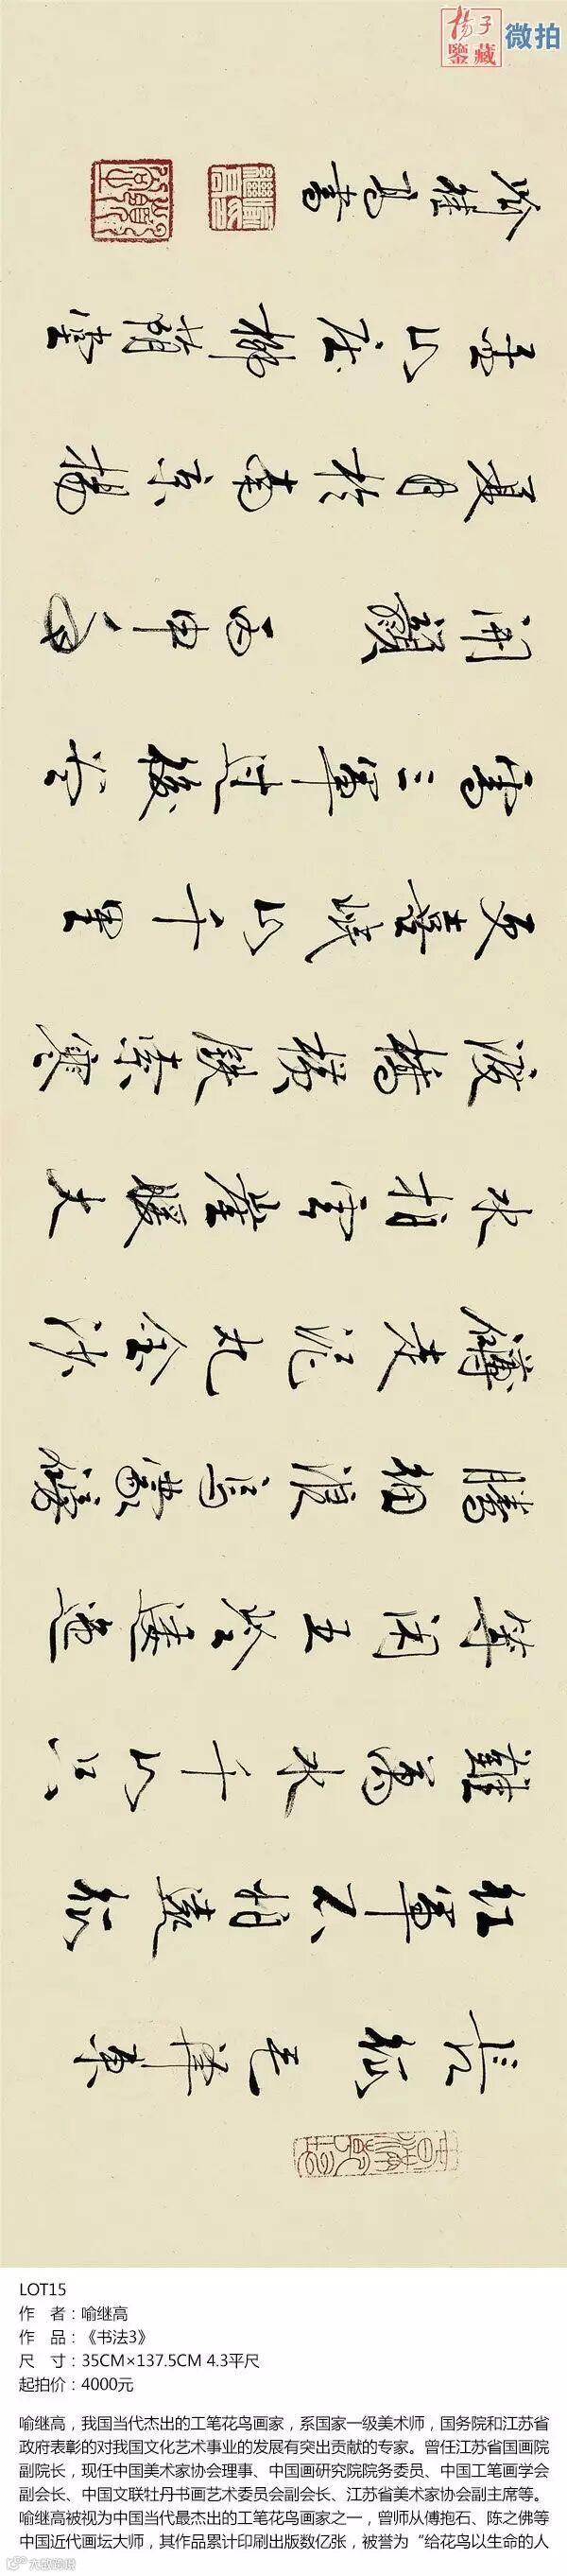 揚子
鑒藏
微拍
長征 毛澤東
紅軍不怕遠征
難萬水千山只
等闲五嶺逶迤
騰細浪烏蒙磅
礴走泥丸金沙
水拍雲崖暖大
渡橋橫鐵索寒
更喜岷山千里
雪三軍过後尽
開顏 丙申年
夏日於南京
山庄柳堂
喻继高書
LOT15
作 者：喻继高
作 品：《书法3》
尺 寸：35CM×137.5CM 4.3平尺
起拍价：4000元
喻继高，我国当代杰出的工笔花鸟画家，系国家一级美术师，国务院和江苏省
政府表彰的对我国文化艺术事业的发展有突出贡献的专家。曾任江苏省国画院
副院长，现任中国美术家协会理事、中国画研究院院务委员、中国工笔画学会
副会长、中国文联牡丹书画艺术委员会副会长、江苏省美术家协会副主席等。
喻继高被视为中国当代最杰出的工笔花鸟画家之一，曾师从傅抱石、陈之佛等
中国近代画坛大师，其作品累计印刷出版数亿张，被誉为“给花鸟以生命的人
大数跨境